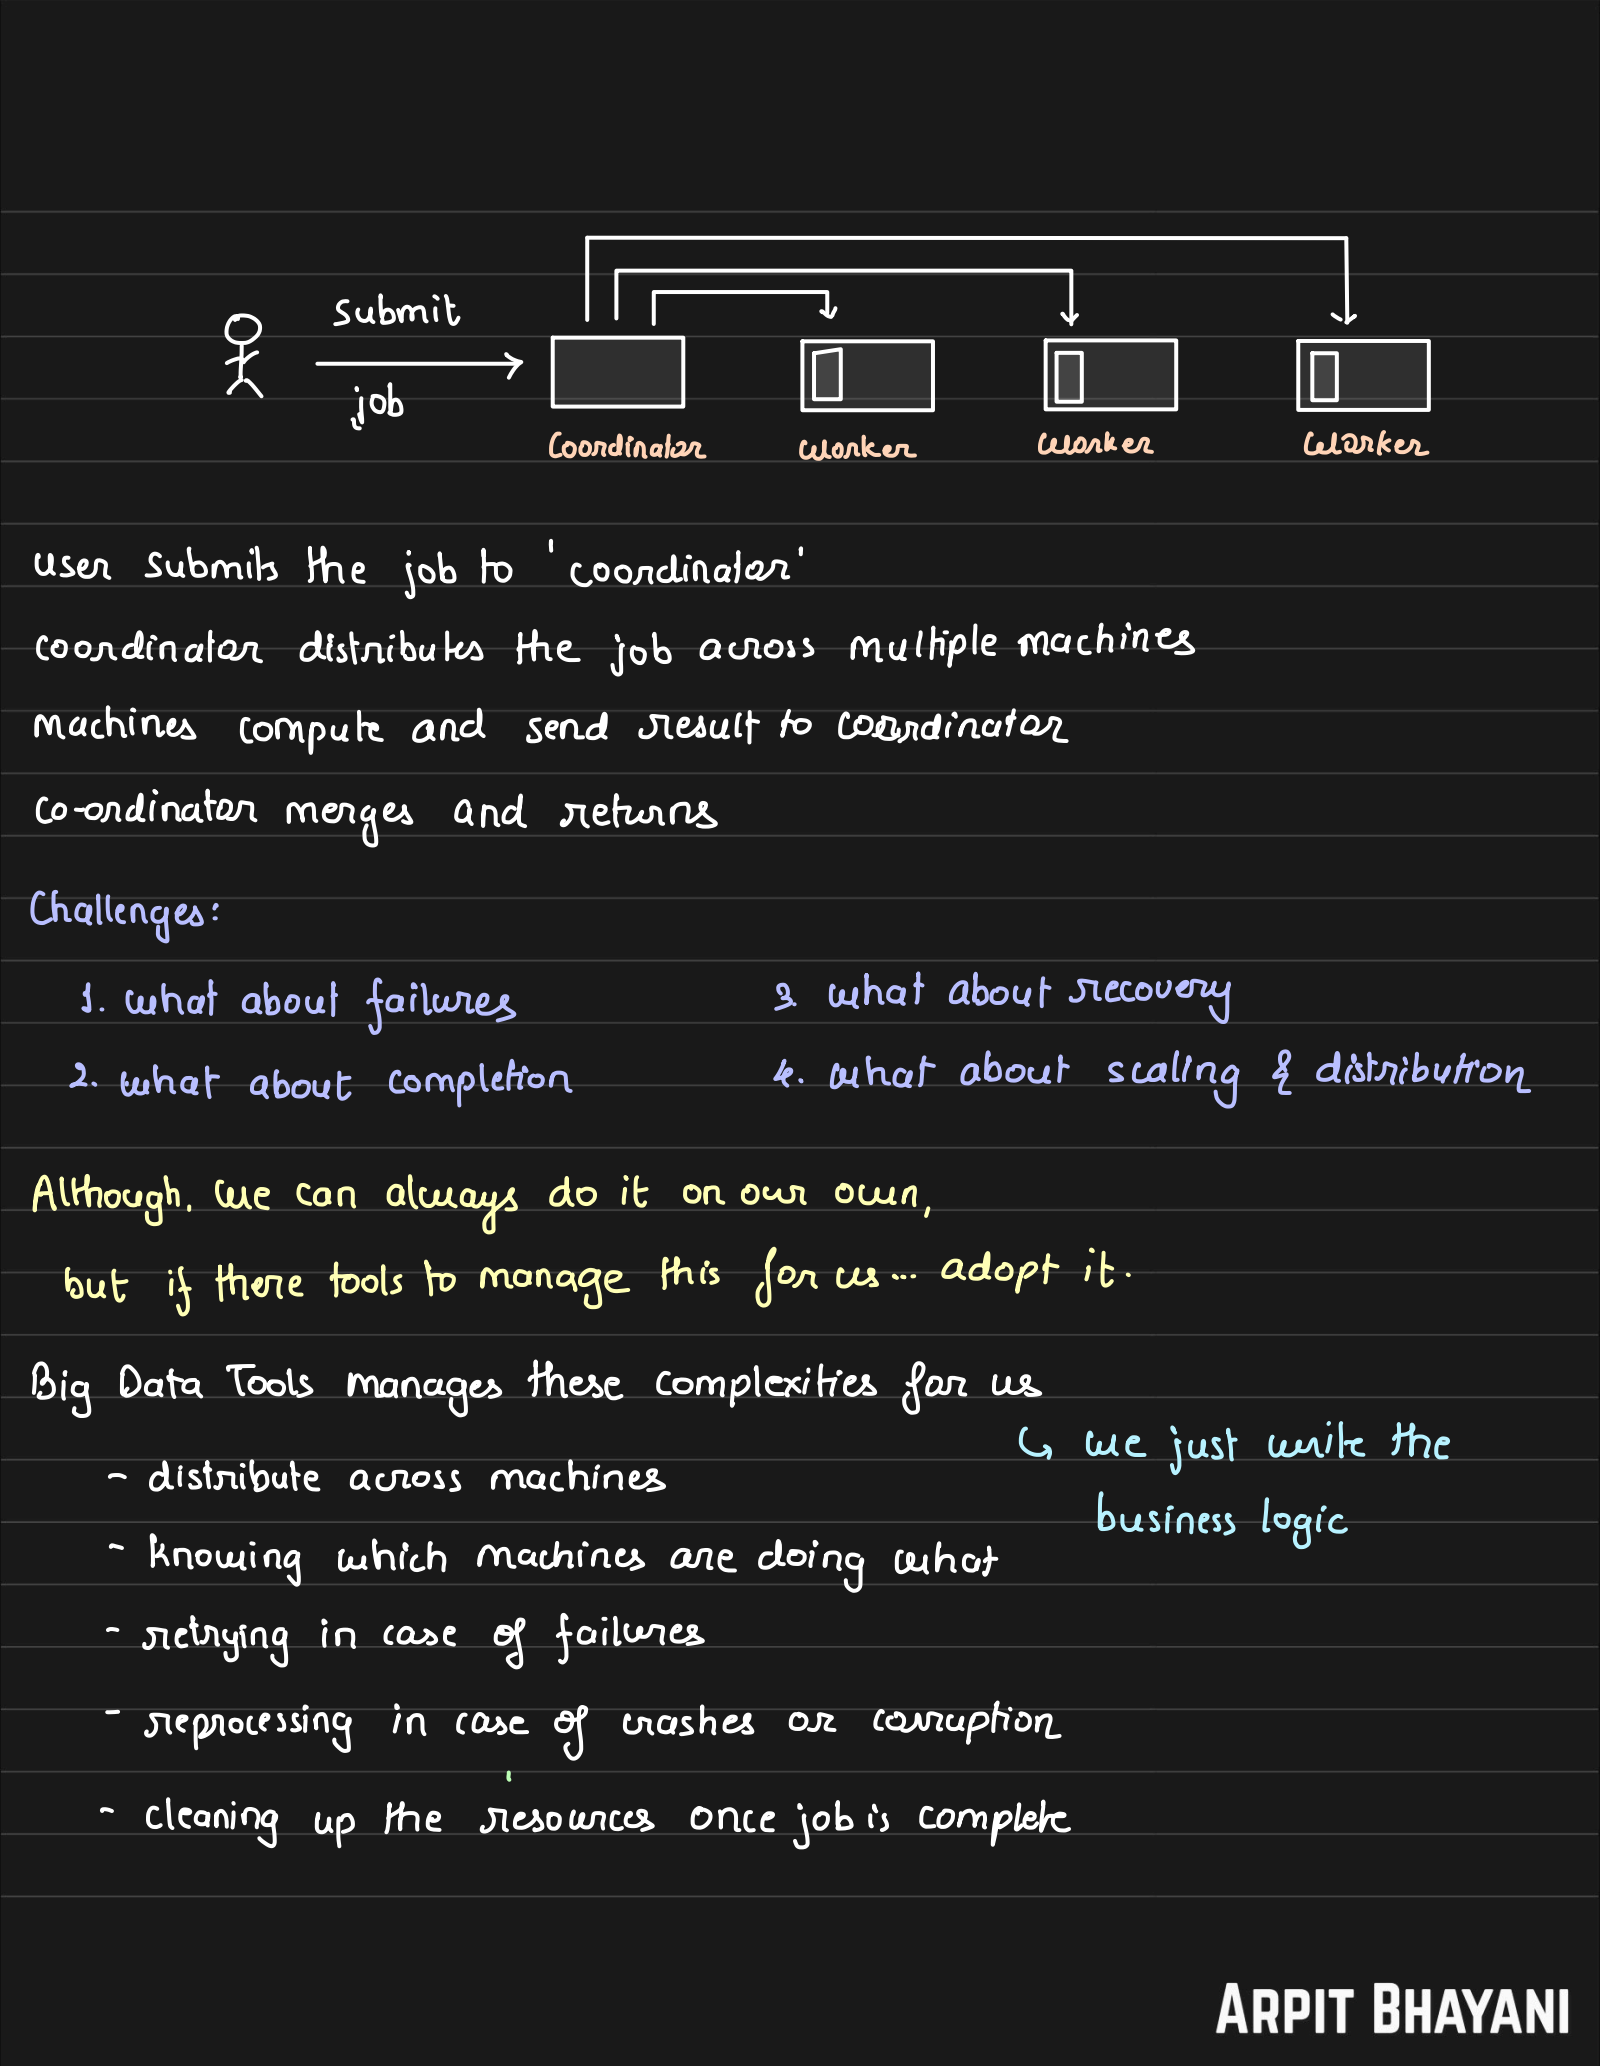 submit
job
Coordinator worker worker worker
user submits the job to 'coordinator'
coordinator distributes the job across multiple machines
machines compute and send result to coordinator
co-ordinator merges and returns
Challenges:
1. what about failures 3. what about recovery
2. what about completion 4. what about scaling & distribution
Although, we can always do it on our own,
but if there tools to manage this for us... adopt it.
Big Data Tools manages these complexities for us
↳ we just write the
business logic
- distribute across machines
- knowing which machines are doing what
- retrying in case of failures
- reprocessing in case of crashes or corruption
- cleaning up the resources once job is complete
ARPIT BHAYANI